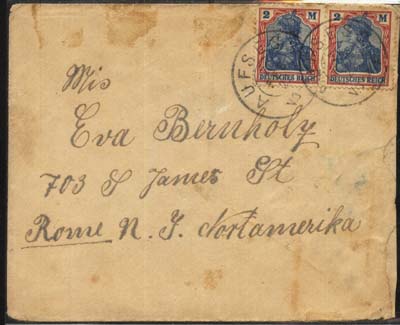 2 M 2 M
DEUTSCHES REICH DEUTSCHES REICH
AUFSESS
Mis
Eva Bernholz
703 S James St
Rome N. J. Nortamerika